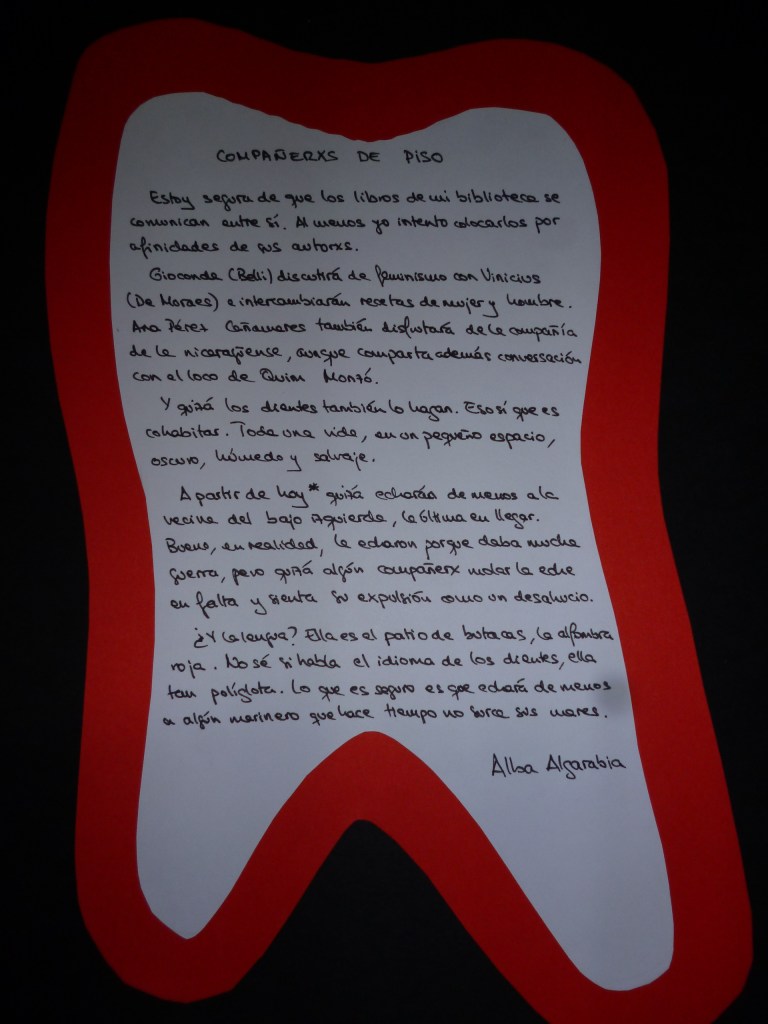 COMPAÑERXS DE PISO
Estoy segura de que los libros de mi biblioteca se
comunican entre sí. Al menos yo intento colocarlos por
afinidades de sus autorxs.
Gioconda (Belli) discutirá de feminismo con Vinicius
(De Moraes) e intercambiarán recetas de mujer y hombre.
Ana Pérez Cañamares también disfrutará de la compañía
de la nicaragüense, aunque comparta además conversación
con el loco de Quim Monzó.
Y quizá los dientes también lo hagan. Eso sí que es
cohabitar. Toda una vida, en un pequeño espacio,
oscuro, húmedo y salvaje.
A partir de hoy* quizá echarán de menos a la
vecina del bajo izquierda, la última en llegar.
Bueno, en realidad, la echaron porque daba mucha
guerra, pero quizá algún compañerx molar la eche
en falta y sienta su expulsión como un desahucio.
¿Y la lengua? Ella es el patio de butacas, la alfombra
roja. No sé si habla el idioma de los dientes, ella
tan políglota. Lo que es seguro es que echará de menos
a algún marinero que hace tiempo no surca sus mares.
Alba Algarabía